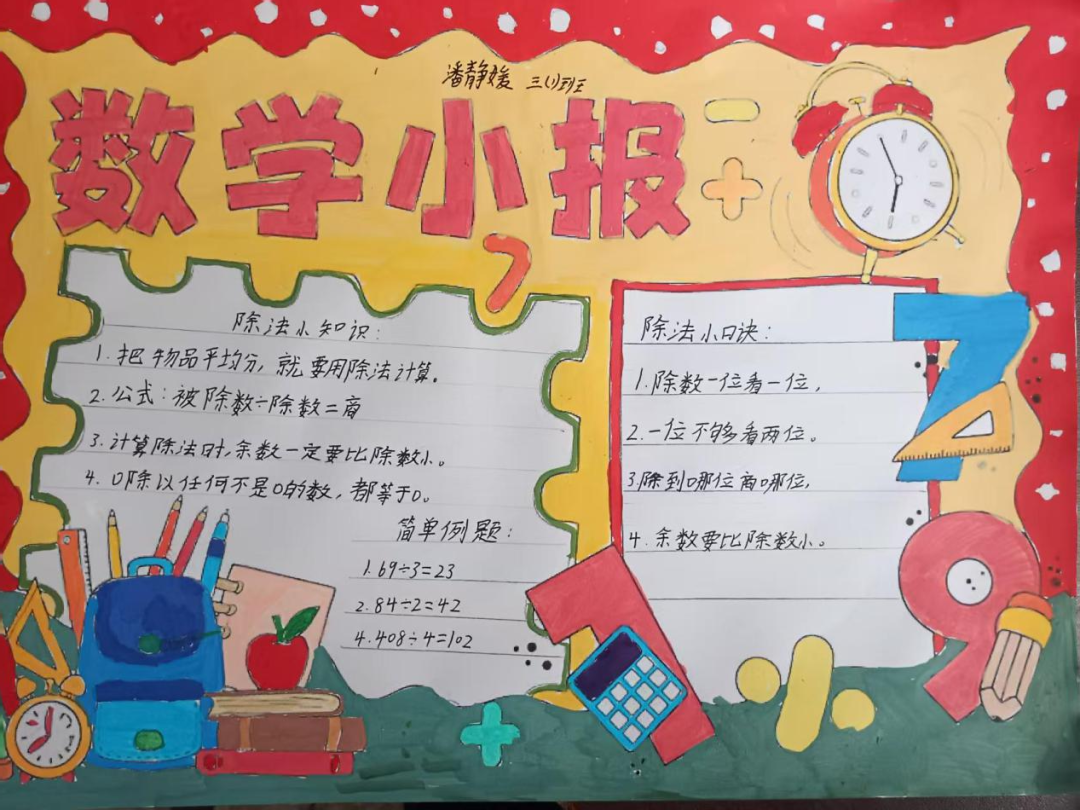 潘静媛 三(1)班
数学小报
除法小知识:
1.把物品平均分,就要用除法计算。
2.公式:被除数÷除数=商
3.计算除法时,余数一定要比除数小。
4.0除以任何不是0的数,都等于0。
简单例题:
1.69÷3=23
2.84÷2=42
4.408÷4=102
除法小口诀:
1.除数一位看一位,
2.一位不够看两位。
3.除到哪位商哪位,
4.余数要比除数小。
7
9
1